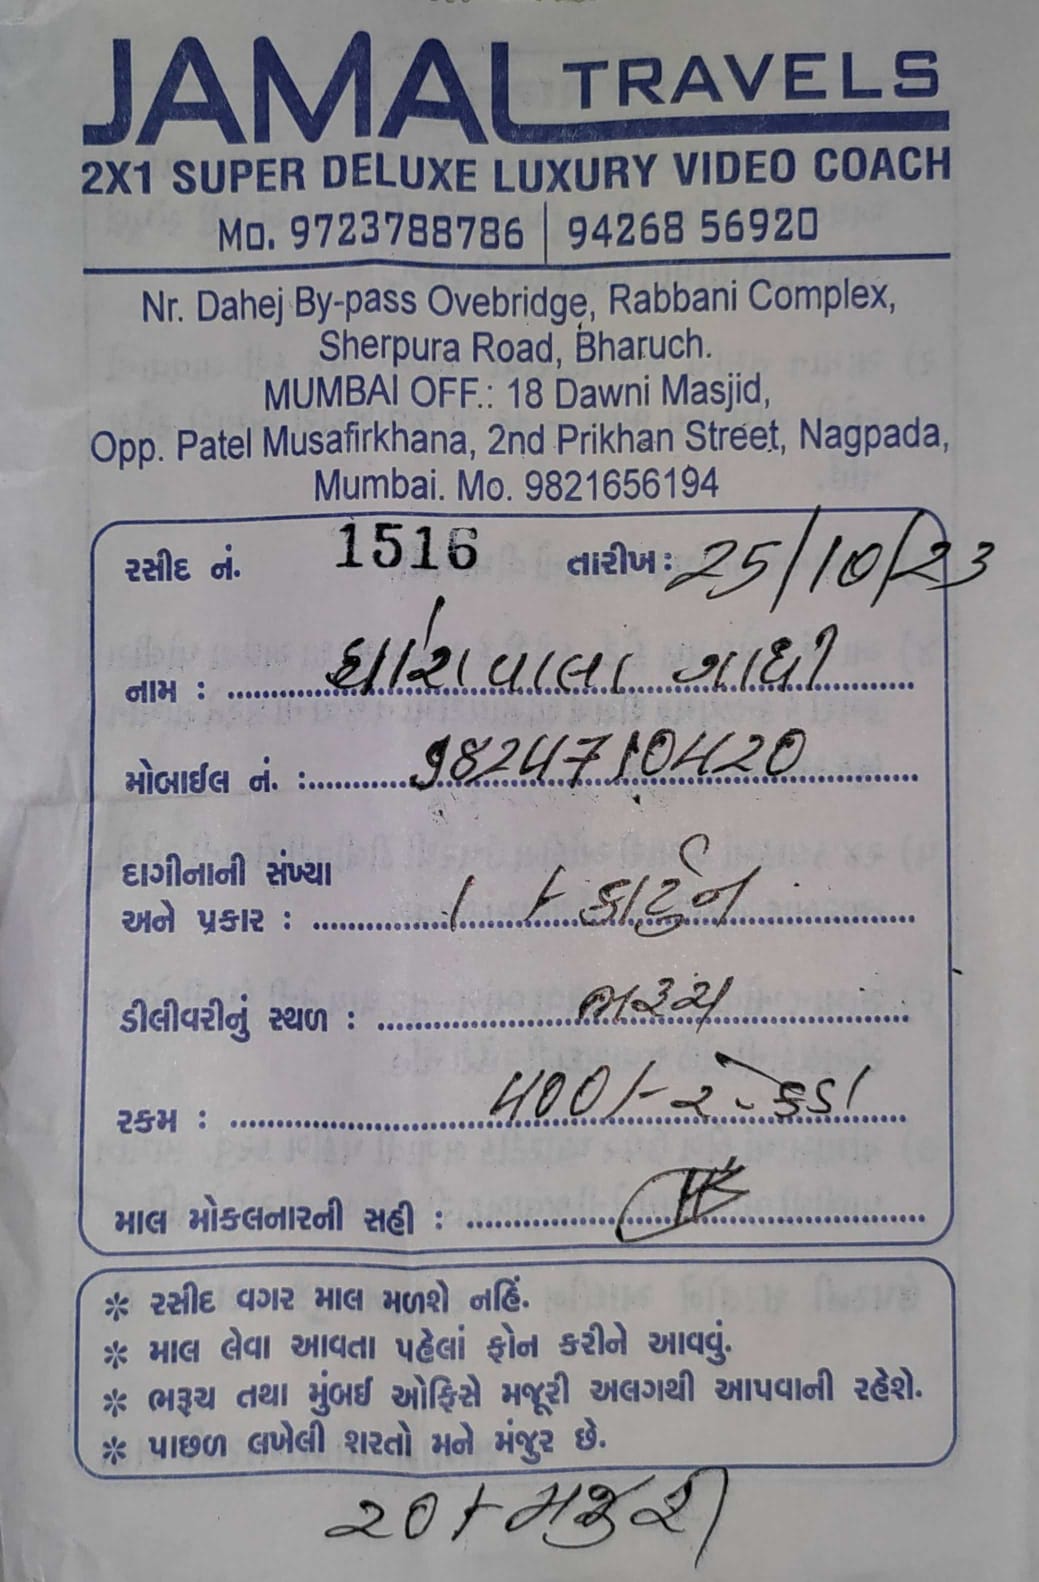 JAMAL TRAVELS
2X1 SUPER DELUXE LUXURY VIDEO COACH
Mo. 9723788786 | 94268 56920
Nr. Dahej By-pass Ovebridge, Rabbani Complex,
Sherpura Road, Bharuch.
MUMBAI OFF.: 18 Dawni Masjid,
Opp. Patel Musafirkhana, 2nd Prikhan Street, Nagpada,
Mumbai. Mo. 9821656194
રસીદ નં. 1516 તારીખ: 25/10/23
નામ :
મોબાઈલ નં. : 9824710420
દાગીનાની સંખ્યા
અને પ્રકાર : 1 કાર્ટુન
ડીલીવરીનું સ્થળ : ભરૂચ
રકમ : 400/- રોકડા
માલ મોકલનારની સહી :
* રસીદ વગર માલ મળશે નહિં.
* માલ લેવા આવતા પહેલાં ફોન કરીને આવવું.
* ભરૂચ તથા મુંબઈ ઓફિસે મજૂરી અલગથી આપવાની રહેશે.
* પાછળ લખેલી શરતો મને મંજુર છે.
20/- મજુરી